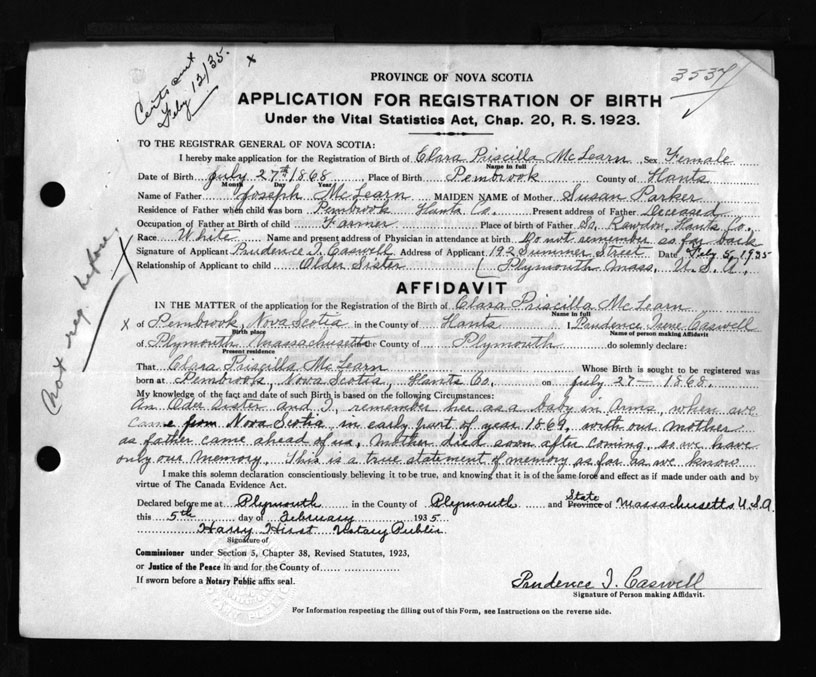 Cert sent
Feby 12/35.
x
3537
PROVINCE OF NOVA SCOTIA
APPLICATION FOR REGISTRATION OF BIRTH
Under the Vital Statistics Act, Chap. 20, R. S. 1923.
TO THE REGISTRAR GENERAL OF NOVA SCOTIA:
I hereby make application for the Registration of Birth of Clara Priscilla McLearn Sex Female
Name in full
Date of Birth July 27th 1868 Place of Birth Pembrook County of Hants
Month Day Year
Name of Father Joseph McLearn MAIDEN NAME of Mother Susan Parker
Residence of Father when child was born Pembrook Hants Co. Present address of Father Deceased
Occupation of Father at Birth of child Farmer Place of birth of Father So. Rawdon, Hants Co.
Race White Name and present address of Physician in attendance at birth Do not remember so far back
Signature of Applicant Prudence I. Caswell Address of Applicant 192 Summer Street Date Feby 5, 1935
Relationship of Applicant to child Older Sister ( Plymouth Mass, U. S. A.
Not reg. before.
X
AFFIDAVIT
IN THE MATTER of the application for the Registration of the Birth of Clara Priscilla McLearn
Name in full
x of Pembrook, Nova Scotia in the County of Hants I, Prudence Irene Caswell
Birth place Name of person making Affidavit
of Plymouth Massachusetts the County of Plymouth do solemnly declare:
Present residence
That Clara Priscilla McLearn Whose Birth is sought to be registered was
born at Pembrook, Nova Scotia, Hants Co. on July 27 — 1868.
My knowledge of the fact and date of such Birth is based on the following Circumstances:
An Oder Sister and I, remember her as a baby in Arms, when we
came from Nova Scotia in early part of year 1869, with our mother
as father came ahead of us, Mother died soon after coming, so we have
only our Memory. This is a true statement of memory as far as we know
I make this solemn declaration conscientiously believing it to be true, and knowing that it is of the same force and effect as if made under oath and by
virtue of The Canada Evidence Act.
Declared before me at Plymouth in the County of Plymouth and State Province of Massachusetts U.S.A.
this 5th day of February 1935
Harry Hirst Notary Public
Signature of
Commissioner under Section 5, Chapter 38, Revised Statutes, 1923,
or Justice of the Peace in and for the County of
If sworn before a Notary Public affix seal.
Prudence I. Caswell
Signature of Person making Affidavit.
For Information respecting the filling out of this Form, see Instructions on the reverse side.